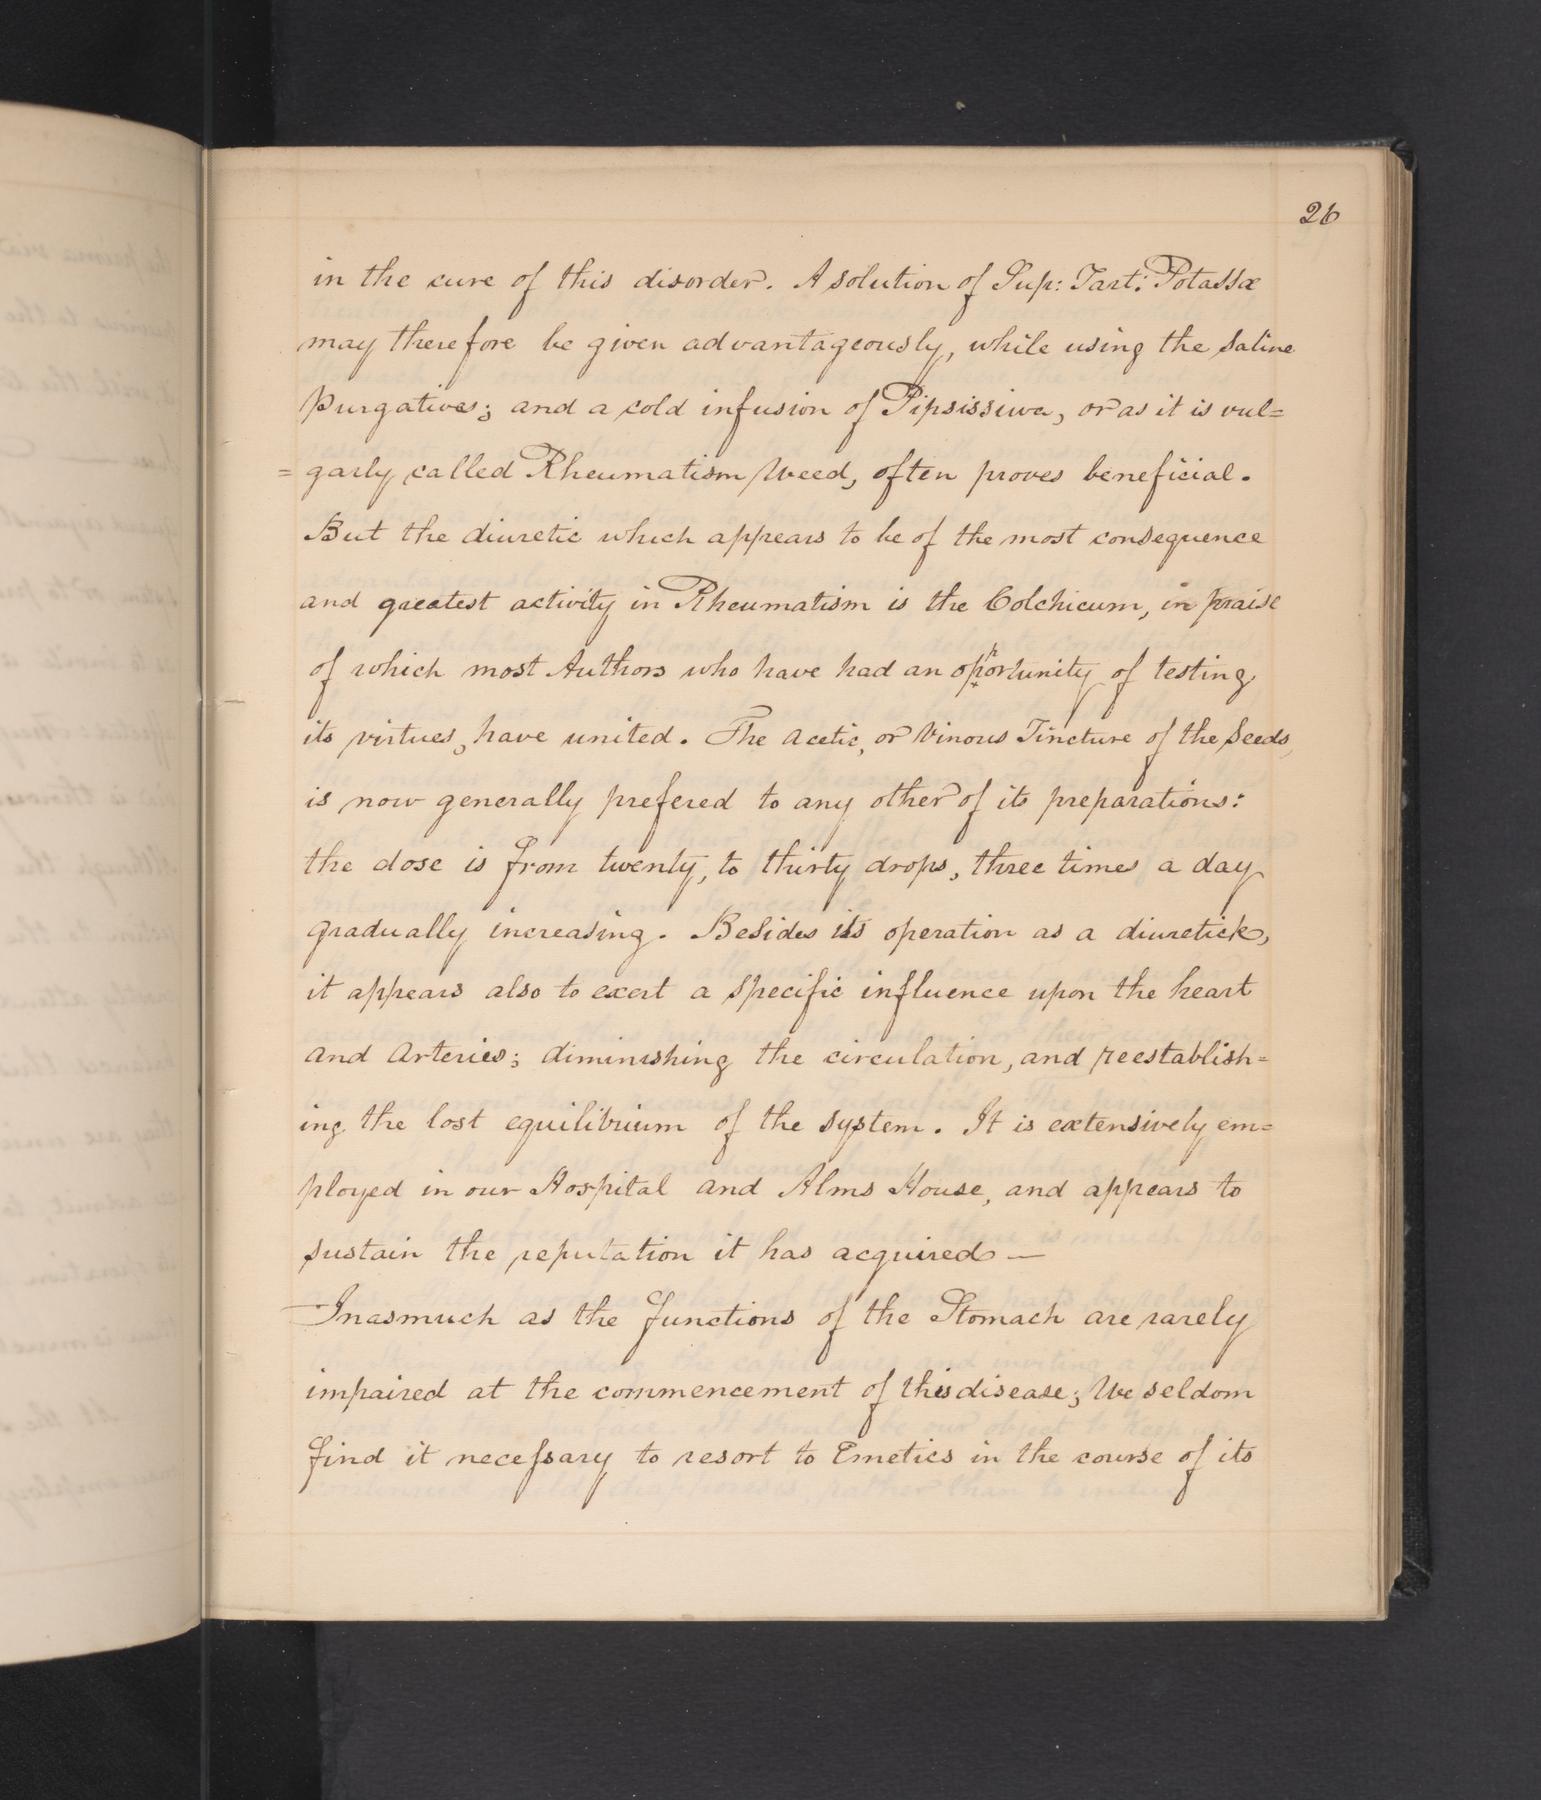 26
in the cure of this disorder. A solution of Sup: Tart: Potassæ
may therefore be given advantageously, while using the Saline
Purgatives; and a cold infusion of Pipsissiwa, or as it is vul=
=garly called Rheumatism Weed, often proves beneficial.
But the diuretic which appears to be of the most consequence
and greatest activity in Rheumatism is the Colchicum, in praise
of which most Authors who have had an opportunity of testing
its virtues, have united. The Acetic, or Vinous Tincture of the Seeds,
is now generally prefered to any other of its preparations:
the dose is from twenty, to thirty drops, three times a day
gradually increasing. Besides its operation as a diuretick,
it appears also to exert a specific influence upon the heart
and Arteries; diminishing the circulation, and reestablish=
ing the lost equilibrium of the system. It is extensively em=
ployed in our Hospital and Alms House, and appears to
sustain the reputation it has acquired —
Inasmuch as the functions of the Stomach are rarely
impaired at the commencement of this disease; We seldom
find it neceſsary to resort to Emetics in the course of its